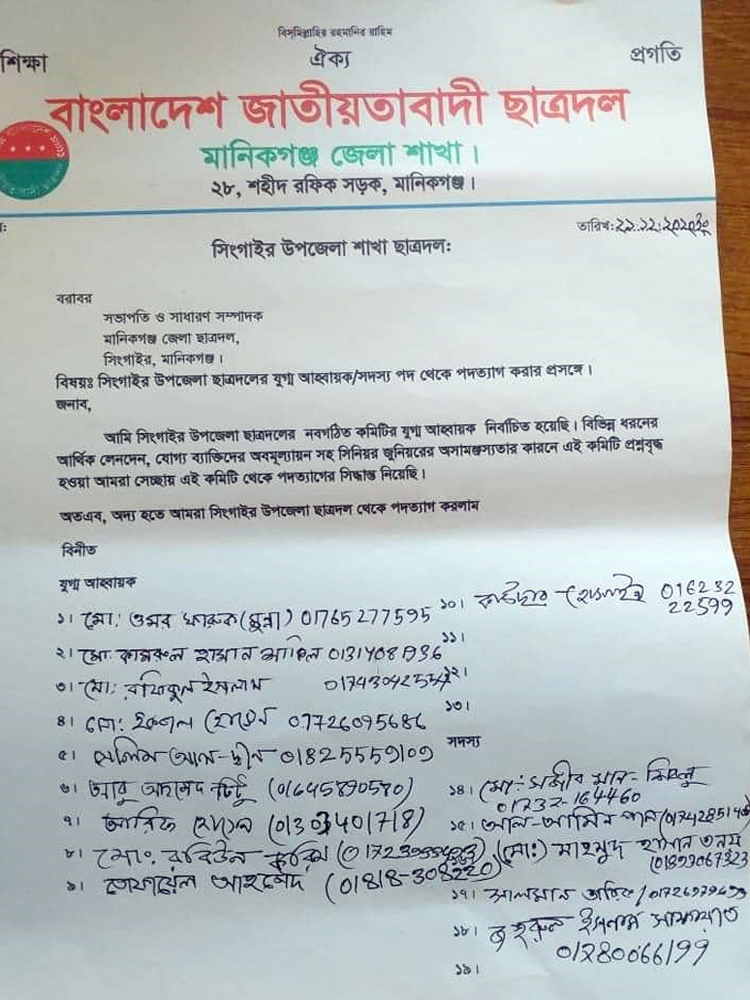 বিসমিল্লাহির রহমানির রাহিম
শিক্ষা ঐক্য প্রগতি
বাংলাদেশ জাতীয়তাবাদী ছাত্রদল
মানিকগঞ্জ জেলা শাখা।
২৮, শহীদ রফিক সড়ক, মানিকগঞ্জ।
তারিখ:
সিংগাইর উপজেলা শাখা ছাত্রদল:
বরাবর
সভাপতি ও সাধারণ সম্পাদক
মানিকগঞ্জ জেলা ছাত্রদল,
সিংগাইর, মানিকগঞ্জ।
বিষয়ঃ সিংগাইর উপজেলা ছাত্রদলের যুগ্ম আহ্বায়ক/সদস্য পদ থেকে পদত্যাগ করার প্রসঙ্গে।
জনাব,
আমি সিংগাইর উপজেলা ছাত্রদলের নবগঠিত কমিটির যুগ্ম আহ্বায়ক নির্বাচিত হয়েছি। বিভিন্ন ধরনের
আর্থিক লেনদেন, যোগ্য ব্যাক্তিদের অবমূল্যায়ন সহ সিনিয়র জুনিয়রের অসামঞ্জস্যতার কারনে এই কমিটি প্রশ্নবৃদ্ধ
হওয়া আমরা সেচ্ছায় এই কমিটি থেকে পদত্যাগের সিদ্ধান্ত নিয়েছি।
অতএব, অদ্য হতে আমরা সিংগাইর উপজেলা ছাত্রদল থেকে পদত্যাগ করলাম
বিনীত
যুগ্ম আহ্বায়ক
১। মো: ওমর ফারুক (মুন্না) 01765277595
২। মো: কামরুল হাসান
৩। মো: রফিকুল ইসলাম
৪। মো: 01726095686
৫। সলিম আল-দ্বীন 01825559109
৬। আবু আহমেদ (01645890580)
৭। আরিফ হোসেন
৮। মো: রবিউল করিম
৯। তোফায়েল আহমেদ (01818-308220)
১০। 01623222599
১১।
১২।
১৩।
সদস্য
১৪। মো: সজীব
01732-164460
১৫। আল-আমিন
(মো:) মাহমুদ হাসান
১৭। সালমান
১৮। ইসলাম
01780066199
১৯।